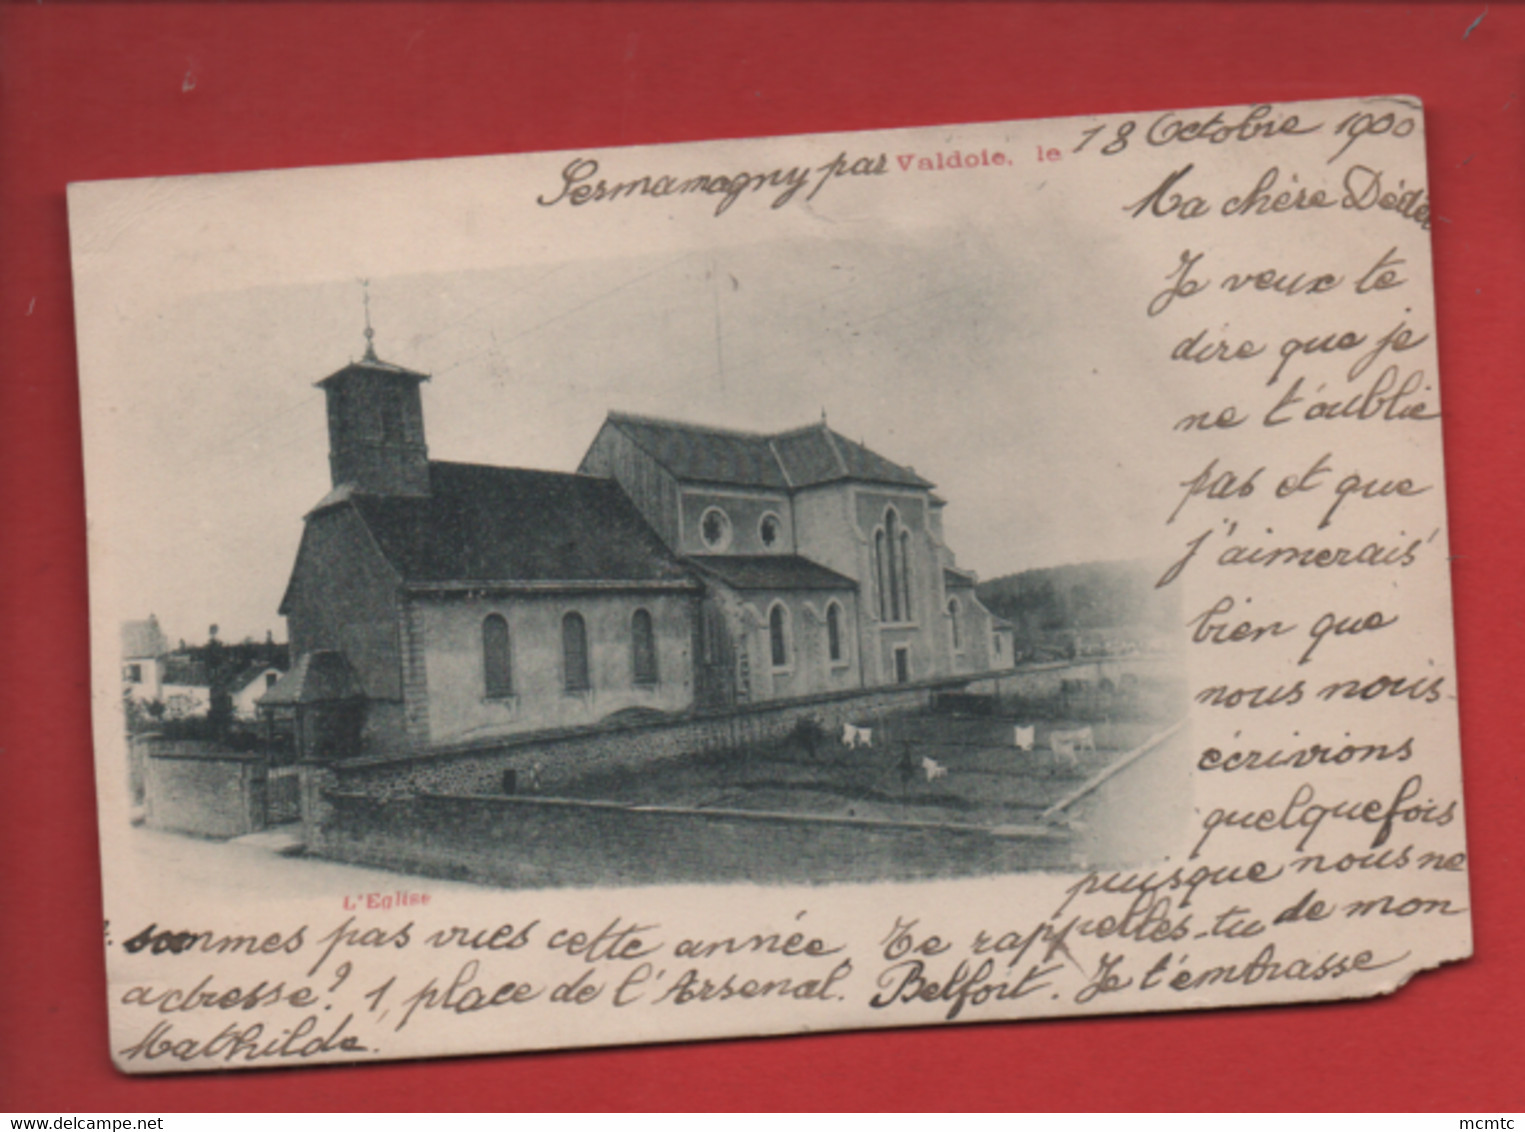 Sermamagny par Valdoie, le 18 Octobre 1900
Ma chère
Je veux te
dire que je
ne t'oublie
pas et que
j'aimerais
bien que
nous nous
écrivions
quelquefois
puisque nous ne
sommes pas vues cette année. Te rappelles-tu de mon
adresse? 1, place de l'Arsenal. Belfort. Je t'embrasse
Mathilde.
L'Eglise
delcampe.net
mcmtc